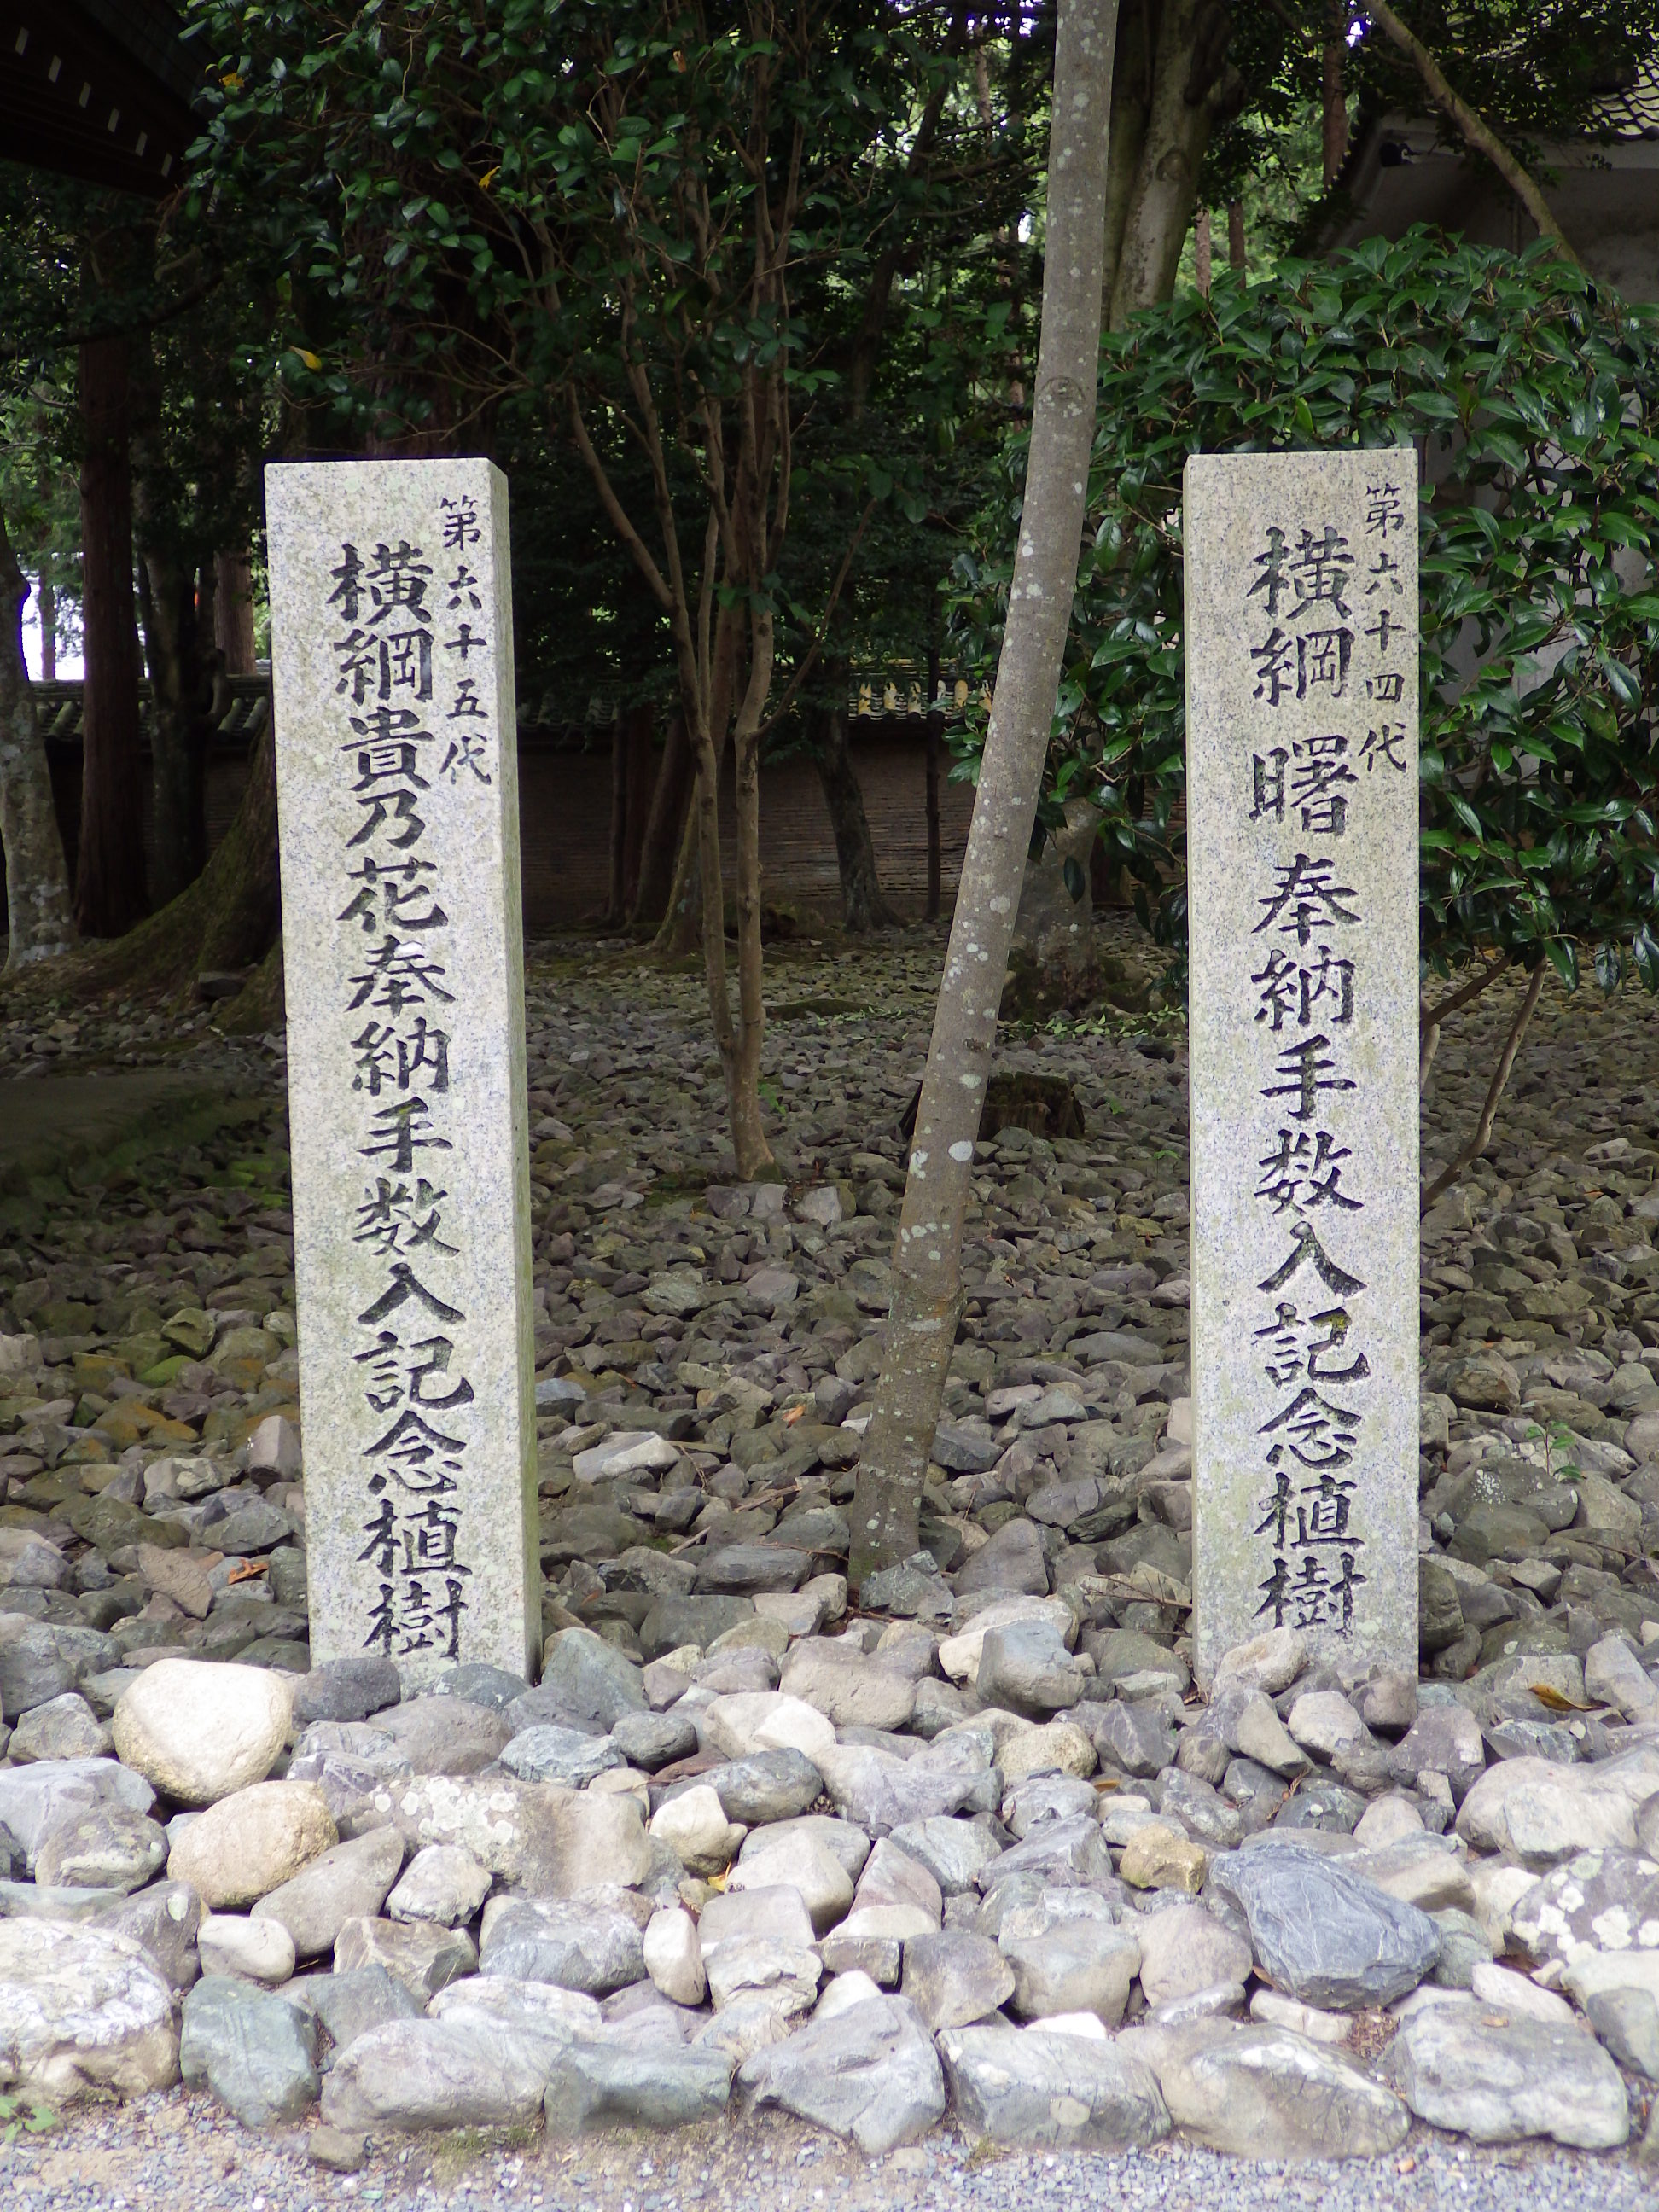 第六十四代
横綱 曙 奉納手数入記念植樹
第六十五代
横綱貴乃花奉納手数入記念植樹